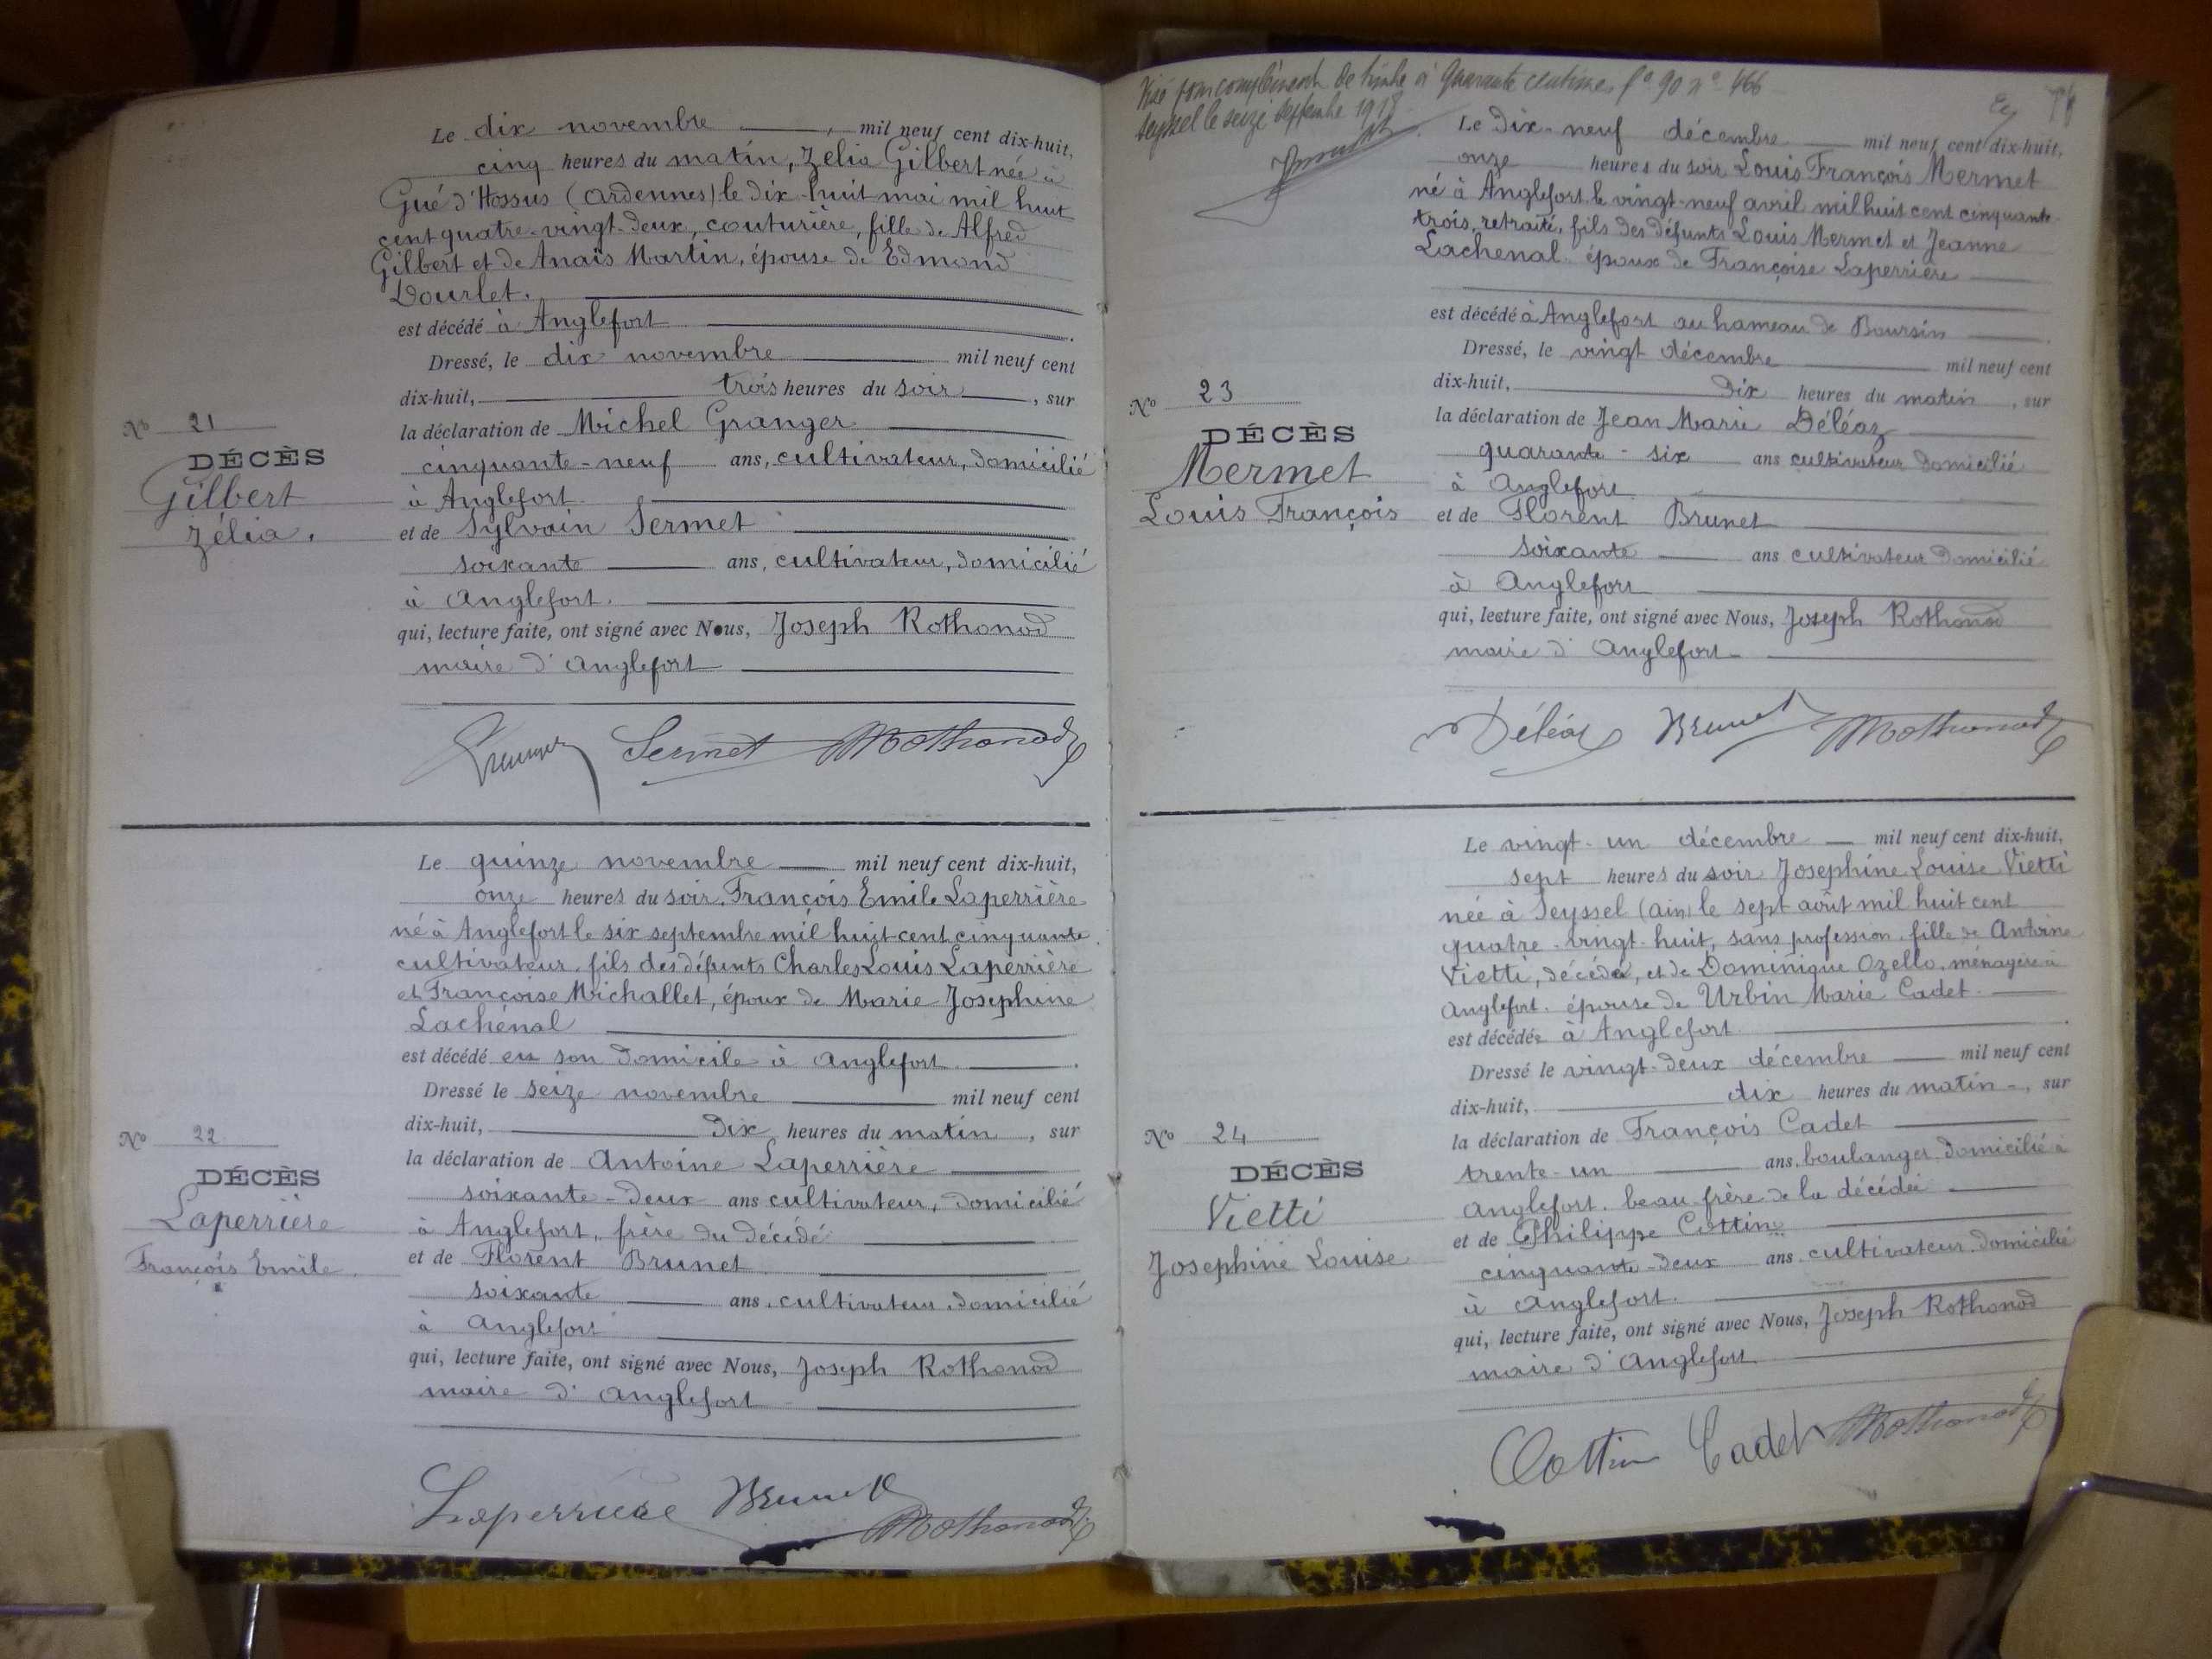 Le dix novembre mil neuf cent dix-huit,
cinq heures du matin, Zelia Gilbert née à
Gué d'Hossus (Ardennes) le dix-huit mai mil huit
cent quatre-vingt-deux, couturière, fille de Alfred
Gilbert et de Anaïs Martin, épouse de Edmond
Dourlet.
est décédé à Anglefort
Dressé, le dix novembre mil neuf cent
dix-huit, trois heures du soir, sur
la déclaration de Michel Granger
cinquante-neuf ans, cultivateur, domicilié
à Anglefort
et de Sylvain Sermet
soixante ans, cultivateur, domicilié
à Anglefort.
qui, lecture faite, ont signé avec Nous, Joseph Rothonod
maire d'Anglefort
Nº 21
DÉCÈS
Gilbert
Zélia.
Granger Sermet JRothonod
Le quinze novembre mil neuf cent dix-huit,
onze heures du soir, François Emile Laperrière
né à Anglefort le six septembre mil huit cent cinquante
cultivateur, fils des défunts Charles Louis Laperrière
et Françoise Michallet, époux de Marie Josephine
Lachenal
est décédé en son domicile à Anglefort.
Dressé le seize novembre mil neuf cent
dix-huit, dix heures du matin, sur
la déclaration de Antoine Laperrière
soixante-deux ans cultivateur, domicilié
à Anglefort, frère du décédé
et de Florent Brunet
soixante ans, cultivateur domicilié
à Anglefort
qui, lecture faite, ont signé avec Nous, Joseph Rothonod
maire d'Anglefort
Nº 22
DÉCÈS
Laperrière
François Emile
Laperriere Brunet JRothonod
Visé pour complément de timbre à quarante centimes fº 90 nº 466
Seyssel le seize septembre 1918
Le Dix-neuf décembre mil neuf cent dix-huit,
onze heures du soir Louis François Mermet
né à Anglefort le vingt-neuf avril mil huit cent cinquante-
trois, retraité, fils des défunts Louis Mermet et Jeanne
Lachenal époux de Françoise Laperrière
est décédé à Anglefort au hameau de Boursin
Dressé, le vingt décembre mil neuf cent
dix-huit, Dix heures du matin, sur
la déclaration de Jean Marie Déléaz
quarante-six ans cultivateur domicilié
à Anglefort
et de Florent Brunet
soixante ans cultivateur domicilié
à Anglefort
qui, lecture faite, ont signé avec Nous, Joseph Rothonod
maire d'Anglefort
Nº 23
DÉCÈS
Mermet
Louis François
Déléaz Brunet JRothonod
Le vingt-un décembre mil neuf cent dix-huit,
sept heures du soir Josephine Louise Vietti
née à Seyssel (Ain) le sept août mil huit cent
quatre-vingt-huit, sans profession, fille de Antoine
Vietti, décédé, et de Dominique Ozello, ménagère à
Anglefort. épouse de Urbin Marie Cadet.
est décédée à Anglefort.
Dressé le vingt-deux décembre mil neuf cent
dix-huit, dix heures du matin, sur
la déclaration de François Cadet
trente-un ans, boulanger, domicilié à
Anglefort, beau-frère de la décédée
et de Philippe Cottin
cinquante-deux ans. cultivateur. domicilié
à Anglefort.
qui, lecture faite, ont signé avec Nous, Joseph Rothonod
maire d'Anglefort
Nº 24
DÉCÈS
Vietti
Josephine Louise
Cottin Cadet JRothonod